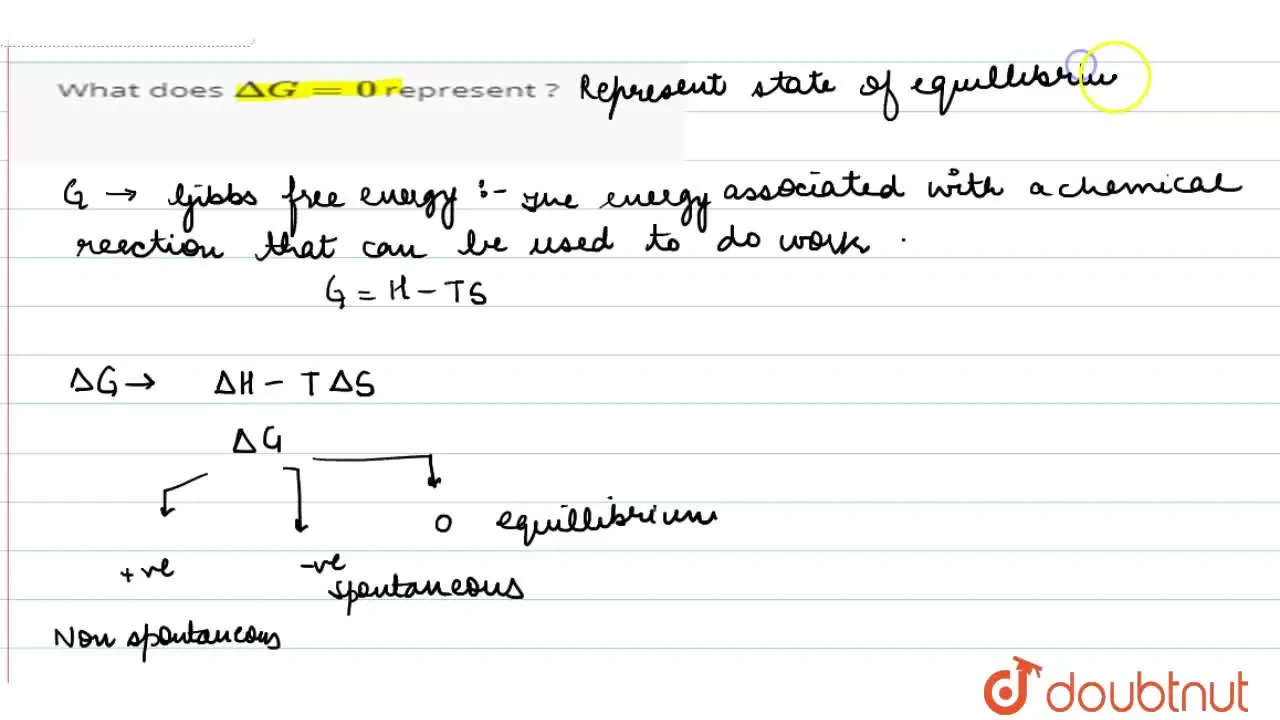 What does ΔG = 0 represent ? Represent state of equillibrium
G → Gibbs free energy :- The energy associated with a chemical
reection that can be used to do work .
G = H - TS
ΔG → ΔH - TΔS
ΔG
0 equillibrium
+ve -ve
spontaneous
Non spontaneous
doubtnut